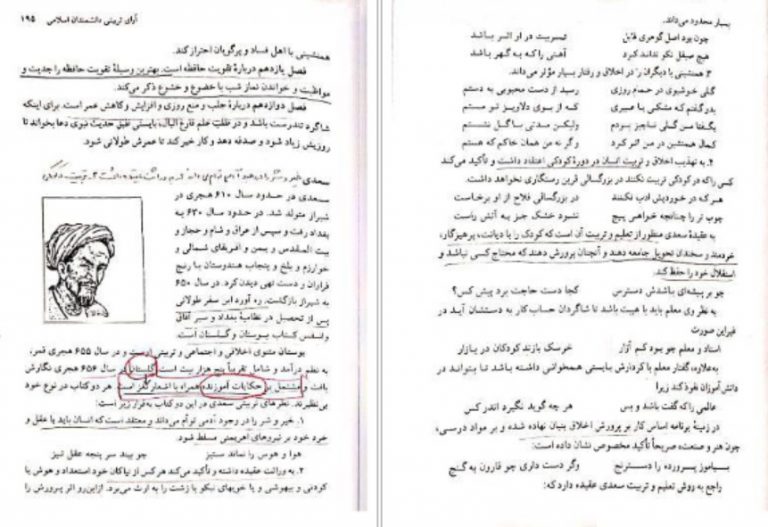 آرای تربیتی دانشمندان اسلامی ۱۹۵
همنشینی با اهل فساد و پرگویان احتراز کند.
فصل یازدهم دربارهٔ تقویت حافظه است. بهترین وسیلهٔ تقویت حافظه را جدیت و
مواظبت و خواندن نماز شب با خضوع و خشوع ذکر می‌کند.
فصل دوازدهم دربارهٔ جلب و منع روزی و افزایش و کاهش عمر است. برای اینکه
شاگرد تندرست باشد و در طلب علم فارغ‌البال، بایستی طبق حدیث نبوی دعا بخواند تا
روزیش زیاد شود و صدقه دهد و کار خیر کند تا عمرش طولانی شود.
سعدی
سعدی در حدود سال ۶۱۰ هجری در
شیراز متولد شد. در حدود سال ۶۳۰ به
بغداد رفت و سپس از عراق و شام و حجاز و
بیت المقدس و یمن و افریقای شمالی و
خوارزم و بلخ و پنجاب هندوستان با رنج
فراران و دست تهی دیدن کرد. در سال ۶۵۰
به شیراز بازگشت. ره آورد این سفر طولانی
پس از تحصیل در نظامیهٔ بغداد و سیر آفاق
وانفس کتاب بوستان و گلستان است.
بوستان مثنوی اخلاقی و اجتماعی و تربیتی است و در سال ۶۵۵ هجری قمر،
به نظم درآمد و شامل تقریباً پنج هزار بیت است. گلستان در سال ۶۵۶ هجری نگارش
یافت و مشتمل بر حکایات آموزنده همراه با اشعار نغز است. هر دو کتاب در نوع خود
بی‌نظیرند. نظرهای تربیتی سعدی در این دو کتاب به‌قرار زیر است:
۱. خیر و شر را در وجود آدمی توأم می‌داند و معتقد است که انسان باید با عقل و
خرد خود بر نیروهای اهریمنی مسلط شود.
هوا و هوس را نماند ستیز چو بیند سر پنجه عقل تیز
۲. به وراثت عقیده داشته و تأکید می‌کند هر کس از نیاکان خود استعداد و هوش یا
کودنی و بیهوشی و یا خویهای نیکو یا زشت را به ارث می‌برد. ازاین‌رو اثر پرورش را
بسیار محدود می‌داند.
چون بود اصل گوهری قابل تربیت در او اثر باشد
هیچ صیقل نکو نداند کرد آهنی را که به گهر باشد
۳. همنشینی با دیگران را در اخلاق و رفتار بسیار مؤثر می‌داند.
گلی خوشبوی در حمام روزی رسید از دست محبوبی به دستم
بدو گفتم که مشکی یا عبیری که از بوی دلاویز تو مستم
بگفتا من گلی ناچیز بودم ولیکن مدتی با گل نشستم
کمال همنشین در من اثر کرد وگر نه من همان خاکم که هستم
۴. به تهذیب اخلاق و تربیت انسان در دورهٔ کودکی اعتقاد داشت و تأکید می‌کند
کسی را که در کودکی تربیت نکنند در بزرگسالی قرین رستگاری نخواهد داشت.
هر که در خوردیش ادب نکنند در بزرگسالی فلاح از او برخاست
چوب تر را چنانچه خواهی پیچ نشود خشک جیز به آتش راست
به عقیدهٔ سعدی منظور از تعلیم و تربیت آن است که کودک را با دیانت، پرهیزگار،
خردمند و سخندان تحویل جامعه دهند و آنچنان پرورش دهند که محتاج کسی نباشد و
استقلال خود را حفظ کند.
چو بر پیشه‌ای باشدش دسترس کجا دست حاجت برد پیش کس؟
به نظر وی معلم باید با هیبت باشد تا شاگردان حساب کار به دستشان آید در
غیراین صورت
استاد و معلم چو بود کم آزار خرسک بازند کودکان در بازار
به‌علاوه، گفتار معلم با کردارش بایستی همخوانی داشته باشد تا بتواند در
دانش‌آموزان نفوذ کند زیرا
عالمی را که گفت باشد و بس هر چه گوید نگیرد اندر کس
در زمینهٔ برنامه اساس کار بر پرورش اخلاق بنیان نهاده شده و بر مواد درسی،
چون هنر و صنعت، صریحاً تأکید مخصوص نشان داده است:
بیاموز پرورده را دسترنج وگر دست داری چو قارون به گنج
راجع به روش تعلیم و تربیت سعدی عقیده دارد که: